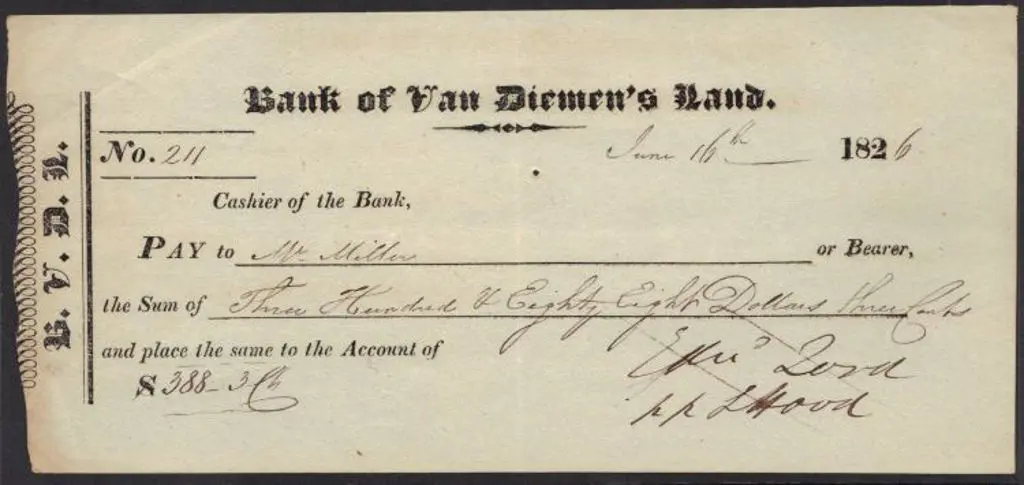 Bank of Van Diemen's Land.
B. V. D. L.
No. 211
June 16th 1826
Cashier of the Bank,
PAY to Mr Miller or Bearer,
the Sum of Three Hundred & Eighty Eight Dollars three Cents
and place the same to the Account of
$ 388-3 Cts
Edwd Lord
pp Hood